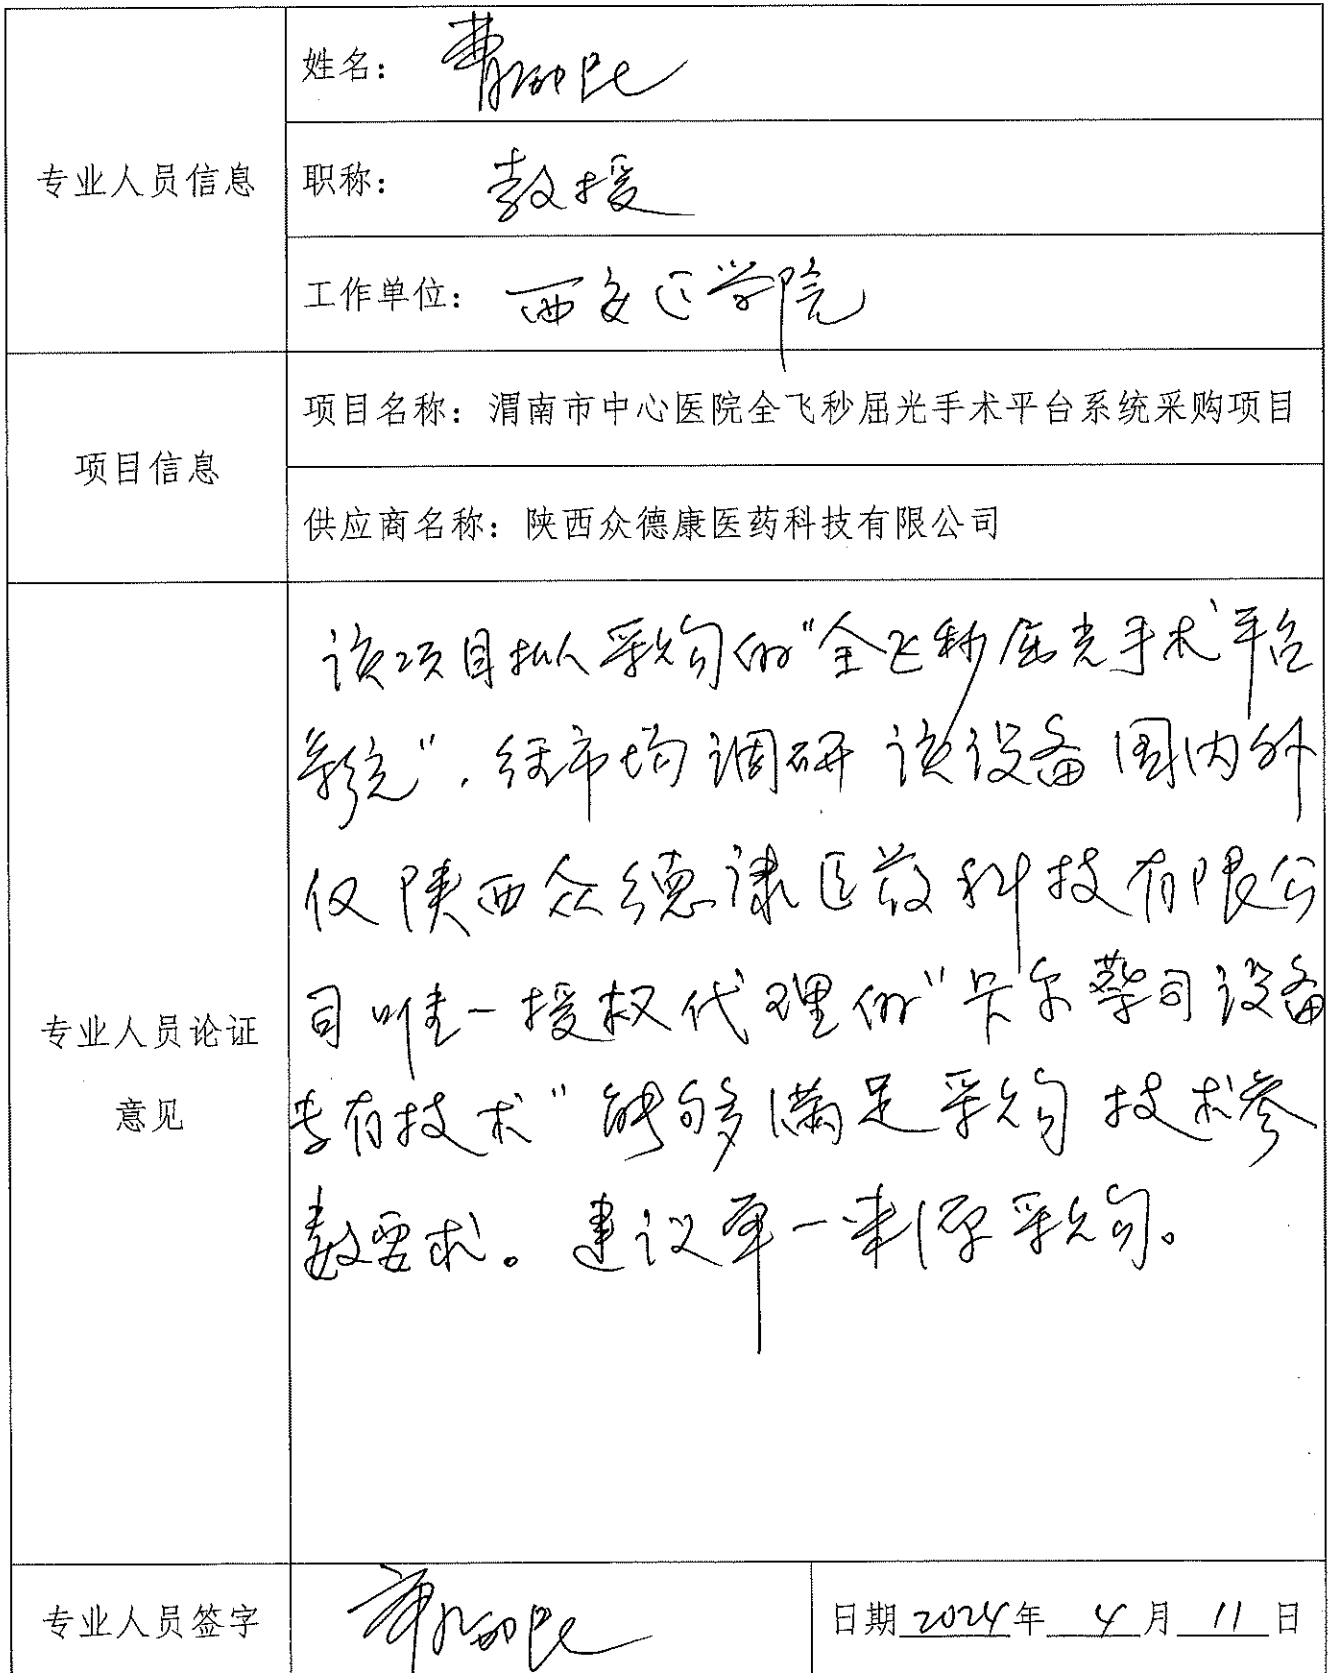 姓名：
专业人员信息
职称： 教授
工作单位： 西安医学院
项目信息
项目名称：渭南市中心医院全飞秒屈光手术平台系统采购项目
供应商名称：陕西众德康医药科技有限公司
专业人员论证
意见
该项目拟采购的"全飞秒屈光手术平台
系统"，经市场调研 该设备国内外
仅陕西众德康医药科技有限公
司唯一授权代理的"卡尔蔡司设备
专有技术"能够满足采购技术参
数要求。建议单一来源采购。
专业人员签字
日期2024年 4 月 11 日